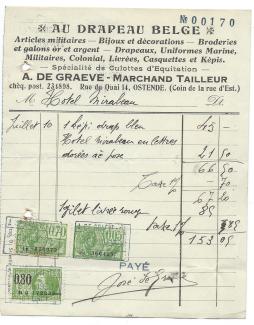 Nº 00170
AU DRAPEAU BELGE
Articles militaires — Bijoux et décorations — Broderies
et galons or et argent — Drapeaux, Uniformes Marine,
Militaires, Colonial, Livrées, Casquettes et Képis.
— Spécialité de Culottes d'Equitation —
A. DE GRAEVE - MARCHAND TAILLEUR
chèq. post. 234898. Rue du Quai 14, OSTENDE. (Coin de la rue d'Est.)
M. Hotel Mirabeau Dt.
Juillet 10 1 képi drap bleu 45 -
Hotel Mirabeau en lettres
dorées 21 50
66 50
Taxe 70
67 20
1 gilet livrée rouge 85
Taxe
153 05
0,70
0,80
PAYÉ
José De Graeve